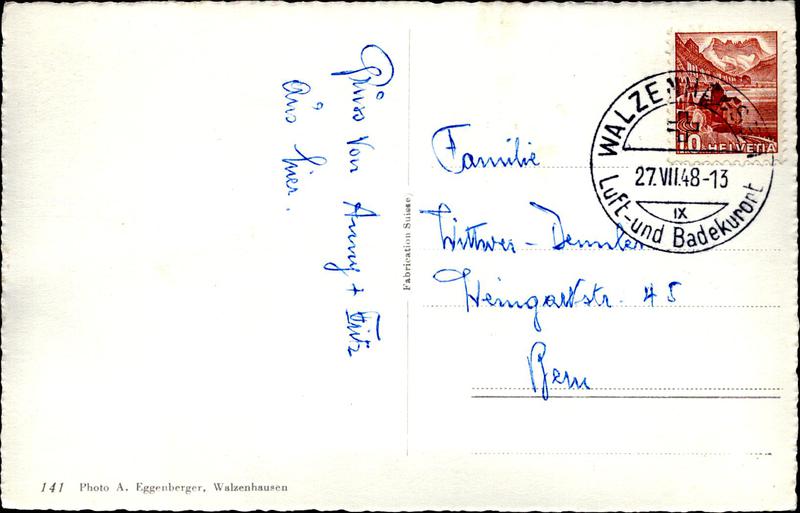 Grüss von Anny + Fritz
aus hier.
Fabrication Suisse
WALZENHAUSEN
27.VII.48-13
IX
Luft- und Badekurort
10 HELVETIA
Familie
Wittwer - Demmler
Weingartstr. 45
Bern
141 Photo A. Eggenberger, Walzenhausen